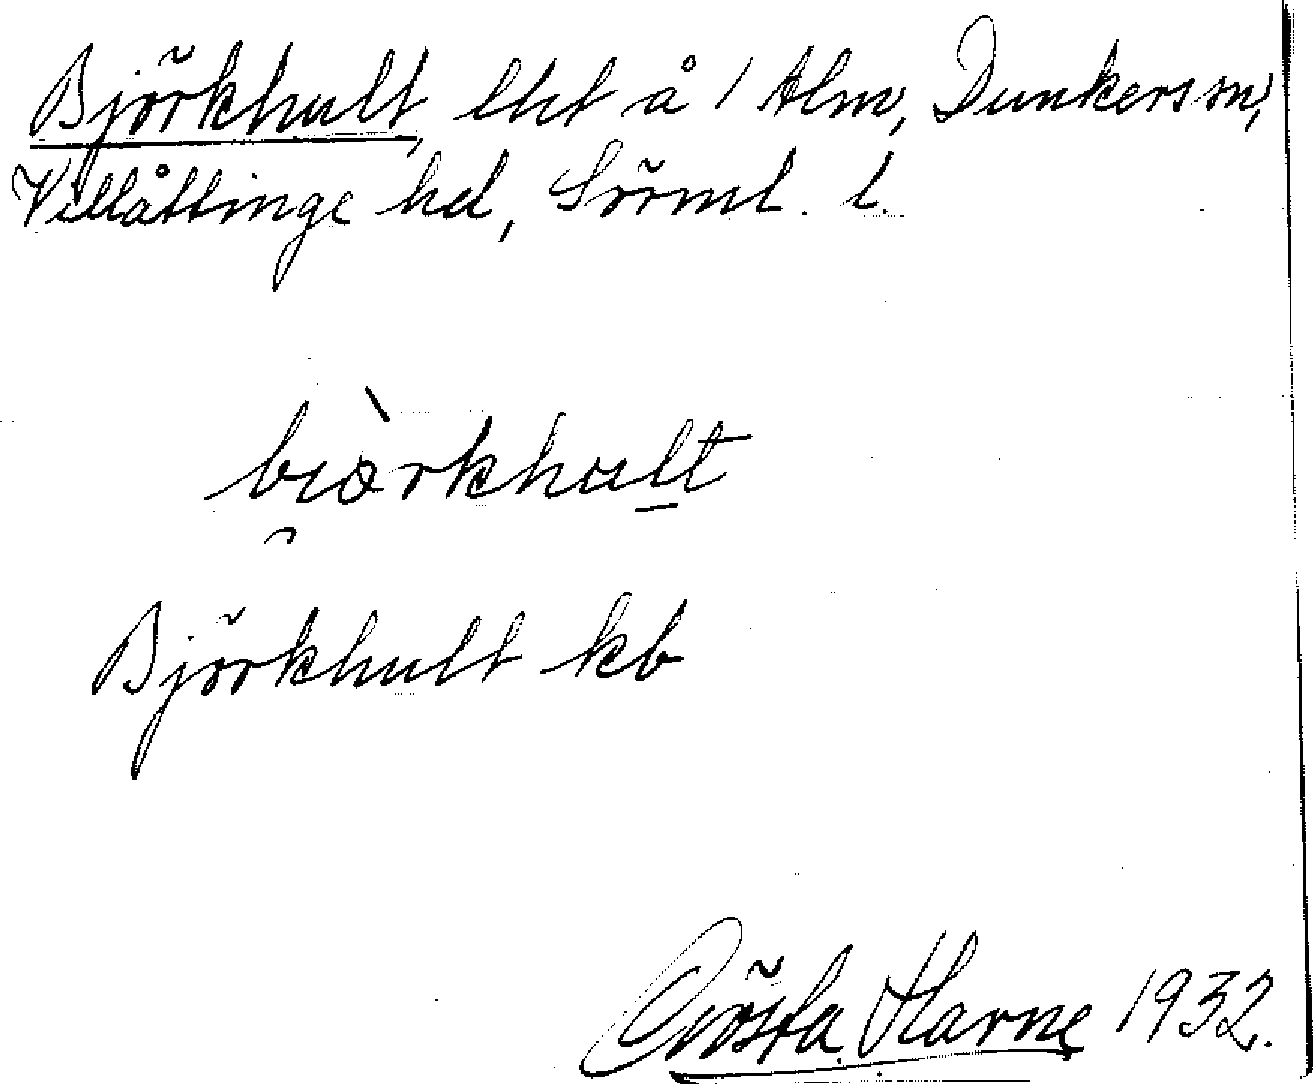 Björkhult, lht å 1 Alm, Dunkers sn,
Villåttinge hd, Sörml. l.
biòrkhult
Björkhult kb
Gösta Harne 1932.